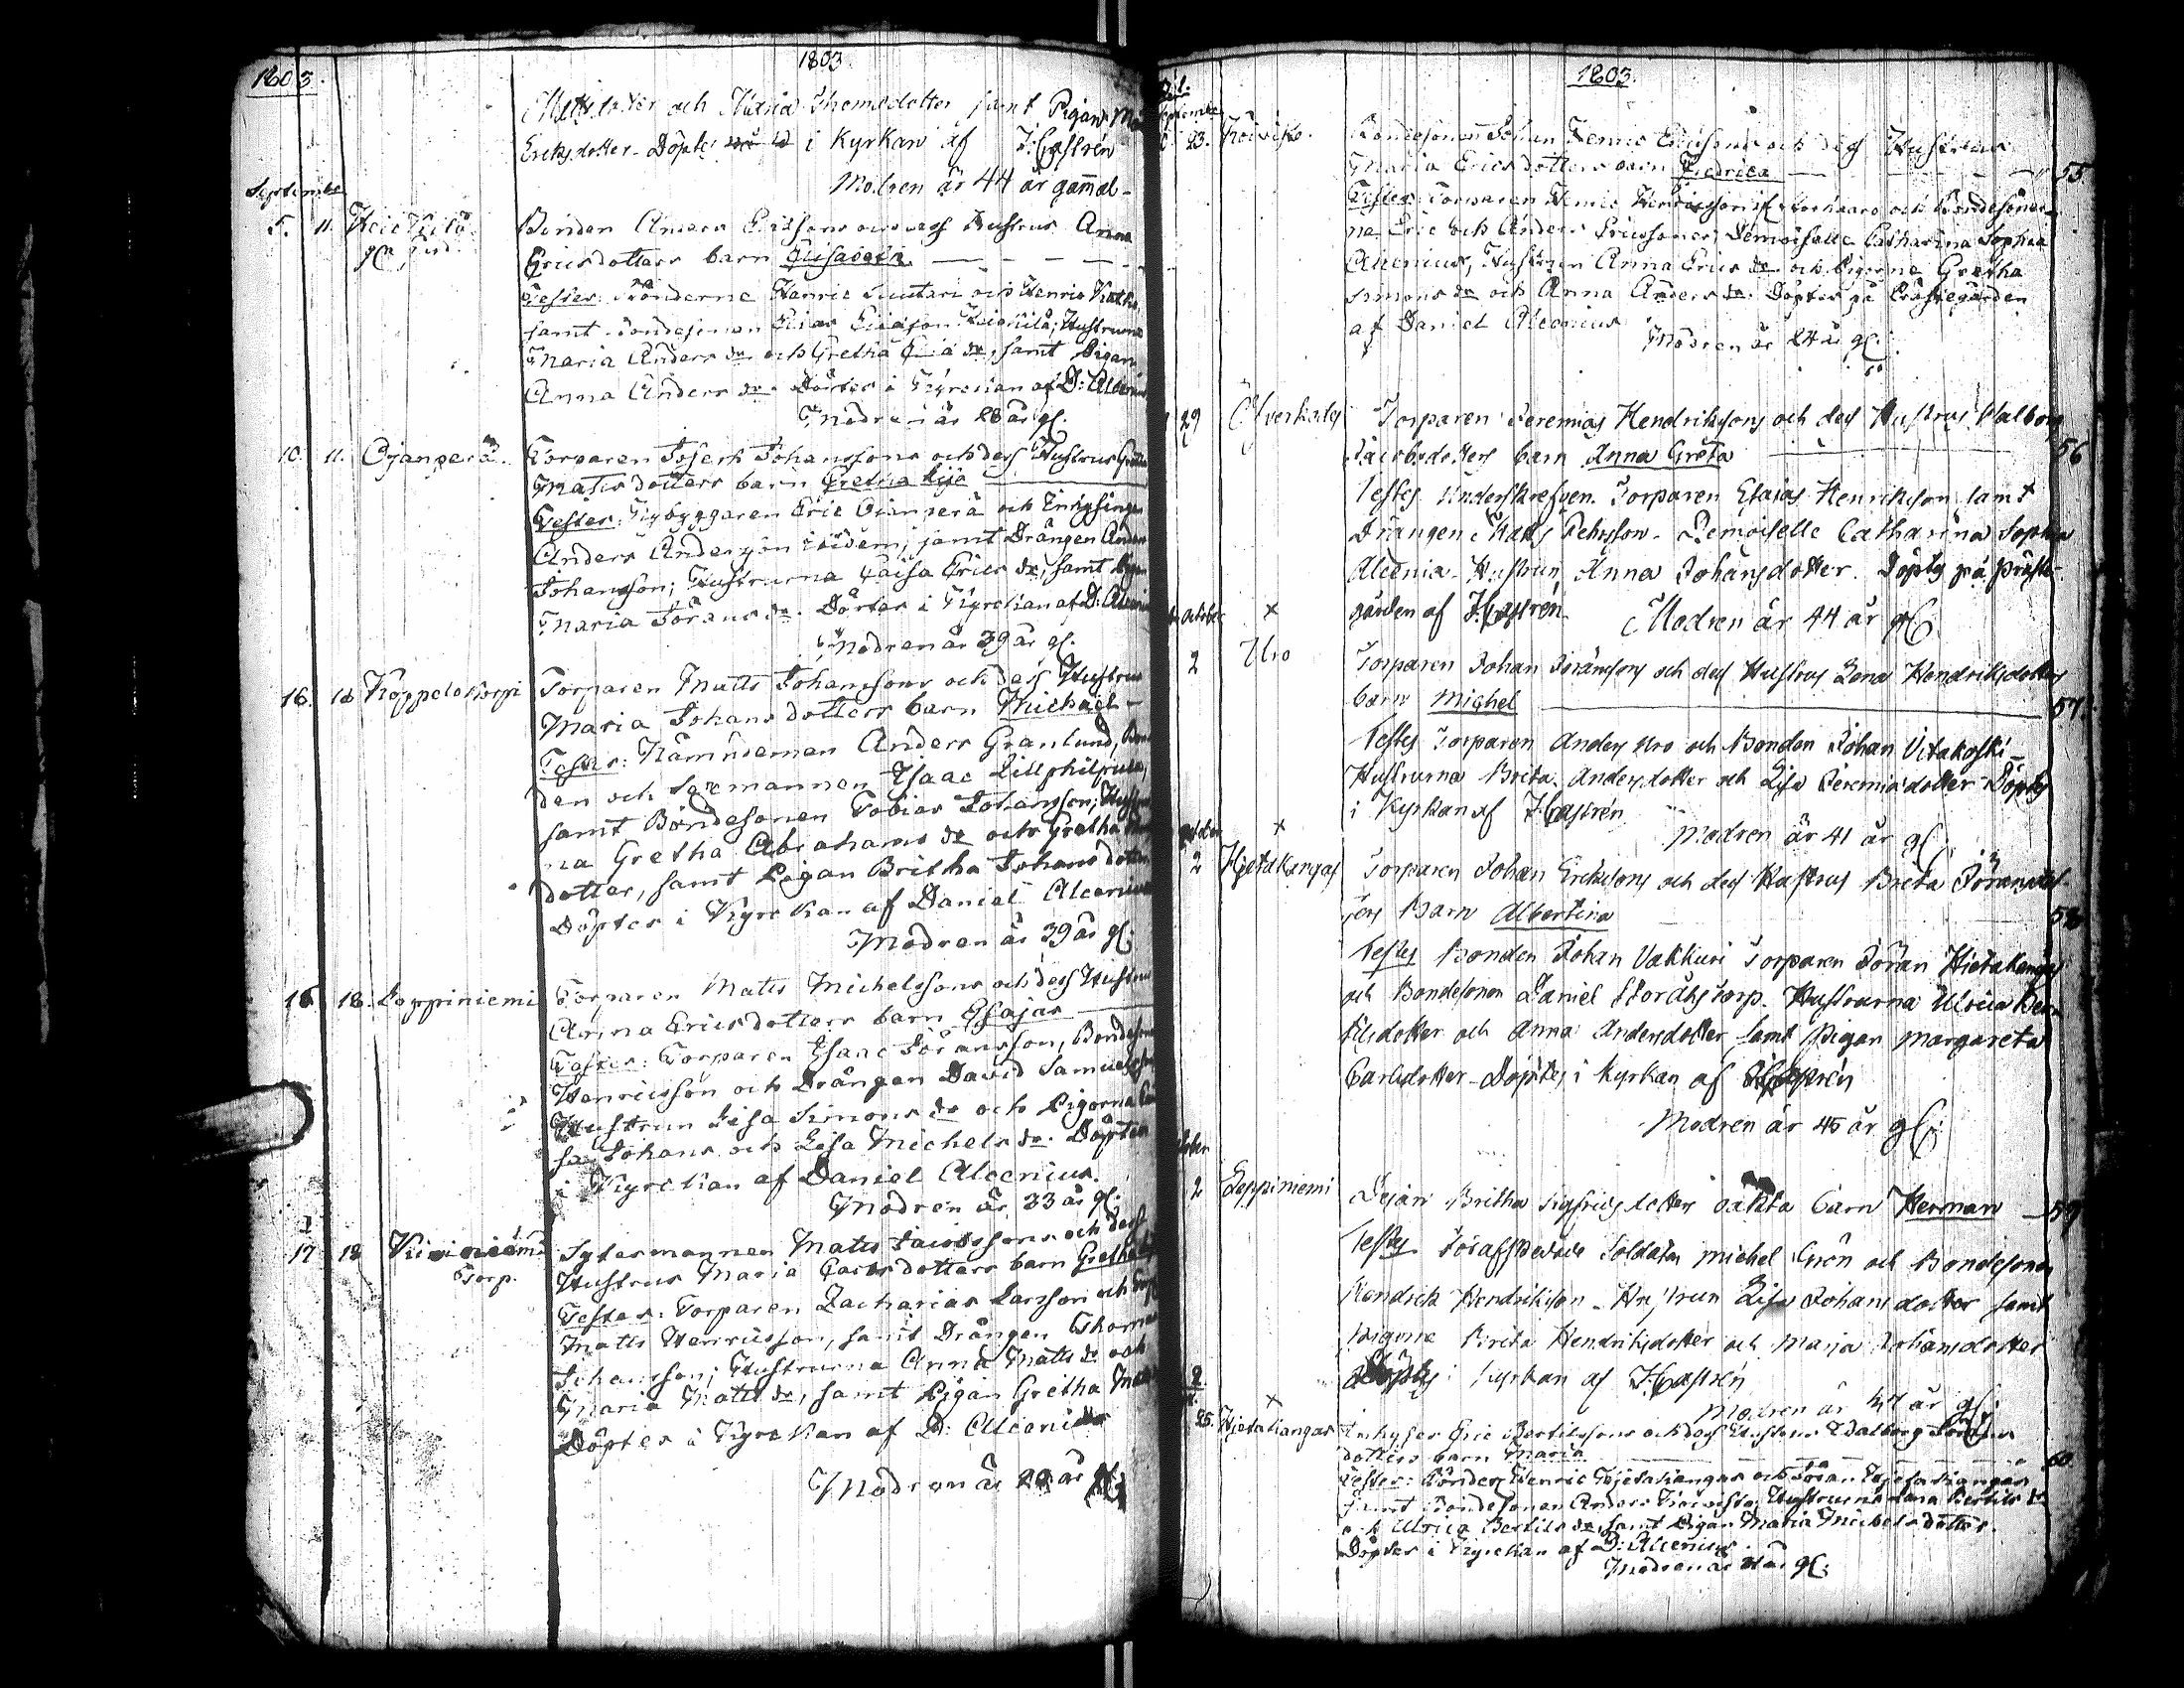 1803.
1803
Mattsdotter och Maria Thomsdotter samt Pigan
Eriksdotter. Döptes i Kyrkan af J: Castrén
Modren är 44 år gam̄al -
September
5. 11.
Bonden Anders Erissons och dess Hustrus Anna
Ericsdotters barn Elisabeth
Testes: Bönderne Henric och Henric
samt Bondesonen Elias Hustrurne
Maria Anders dr och Gretha dr, samt Pigan
Anna Anders dr. Döptes i Kyrckan af D: Alcenius
Modren är 28 år gl.
10. 11. Ojanperä.
Torparen Joseph Johanssons och dess Hustrus Gretha
Matts dotters barn Gretha Lisa
Testes: Nybyggaren Eric Ojanperä och Inhysingen
Anders Andersson ibidem, samt Drängen
Johansson; Hustrurna Caisa Erics dr, samt
Maria Jörans dr. Döptes i Kyrckan af D: Alcenius
Modren är 39 år gl.
16. 18 Koppelotorpi
Torparen Matts Johanssons och dess Hustrus
Maria Johans dotters barn Michael -
Testes: Nämndeman Anders Granlund,
den och Sexmannen Esaac
samt Bondesonen Tobias Johansson; Hustrur
na Gretha Abrahams dr och Gretha
dotter, samt Pigan Britha Johans dotter
Döptes i Kyrckan af Daniel Alcenius
Modren är 39 år gl:
16 18. Leppiniemi
Torparen Matts Michelssons och dess Hustrus
Anna Ericsdotters barn Esajas
Testes: Torparen Esaac Jöransson,
Henricsson och Drängen David Samuelsson
Hustrun Lisa Simons dr och Pigorna
Johans och Lisa Michels dr. Döptes
i Kyrckan af Daniel Alcenius.
Modren är 33 år gl.
17 18 Kiviniemi
Torp.
Matts Jacobssons och dess
Hustrus Maria dotters barn Gretha
Testes: Torparen Zacharias Larsson och
Matts Henricsson, samt Drängen Thomas
Johansson; Hustrurna Anna Matts dr och
Maria Matts dr, samt Pigan Gretha
Döptes i Kyrckan af D: Alcenius
Modren är 22 år gl;
1803.
September
23.
Bondesonen Johan Ericssons och dess Hustrus
Maria Ericsdotters barn Fredrica 55
Testes: Torparen Henric Henricsson och Bondesöner-
na Eric och Anders Ericssoner, Demoiselle Catharina Sophia
Alcenius, Hustrun Anna Erics dr och Pigorne Gretha
Simons dr och Anna Anders dr: Döptes på Prästegården
af Daniel Alcenius
Modren är 24 år gl:
29
Torparen Jeremias Hendriksons och dess Hustrus Valborg
Jacobsdotters barn Anna Greta 56
Testes Underskrefven. Torparen Esaias Henrikson samt
Drängen Matts Pehrsson. Demoiselle Catharina Sophia
Alcenia. Hustrun Anna Johansdotter. Döptes på präste-
gården af J: Castrén. Modren är 44 år gl:
October x
2 Uro
Torparen Johan Jöransons och dess Hustrus Lena Hendriksdotters
barn Michel 57
Testes Torparen Anders Uro och Bonden Johan Üitakoski -
Hustrurna Brita Andersdotter och Lisa Jeremiædotter Döptes
i Kyrkan af J: Castrén
Modren är 41 år gl
October x
2 Hjetakangas
Torparen Johan Eriksons och dess Hustrus Brita Jöransdot-
ters Barn Albertina 58
Testes Bonden Johan Vakkuri Torparen Jöran Hietakangas
och Bondesonen Daniel Hustrurna Ulrica Ber-
tilsdotter och Anna Andersdotter samt Pigan Margareta
Carlsdotter - Döptes i Kyrkan af J: Castrén
Modren är 45 år gl;
October
2 Leppiniemi
Pejan Britha Sigfrids dotters oäkta barn Herman 59
Testes Soldaten Michel Grön och Bondesonen
Hendrick Hendrikson - Hustrun Lisa Johansdotter samt
pigorne Brita Hendriksdotter och Maria Johansdotter
Döptes i kyrkan af J: Castrén
Modren är 47 år gl:
x
25. Hjetakangas
Inhyses Eric Bertilssons och dess Hustrus Walborg Jörans
dotters barn Maria 60
Testes: Bönder Henric Hjetakangas och Jöran Hjetakangas
samt Bondesonen Anders Hustrurna Lena Bertils dr
och Ulrica Bertils dr, samt Pigan Maria Michels dotter.
Döptes i Kyrckan af D: Alcenius
Modren är år gl: